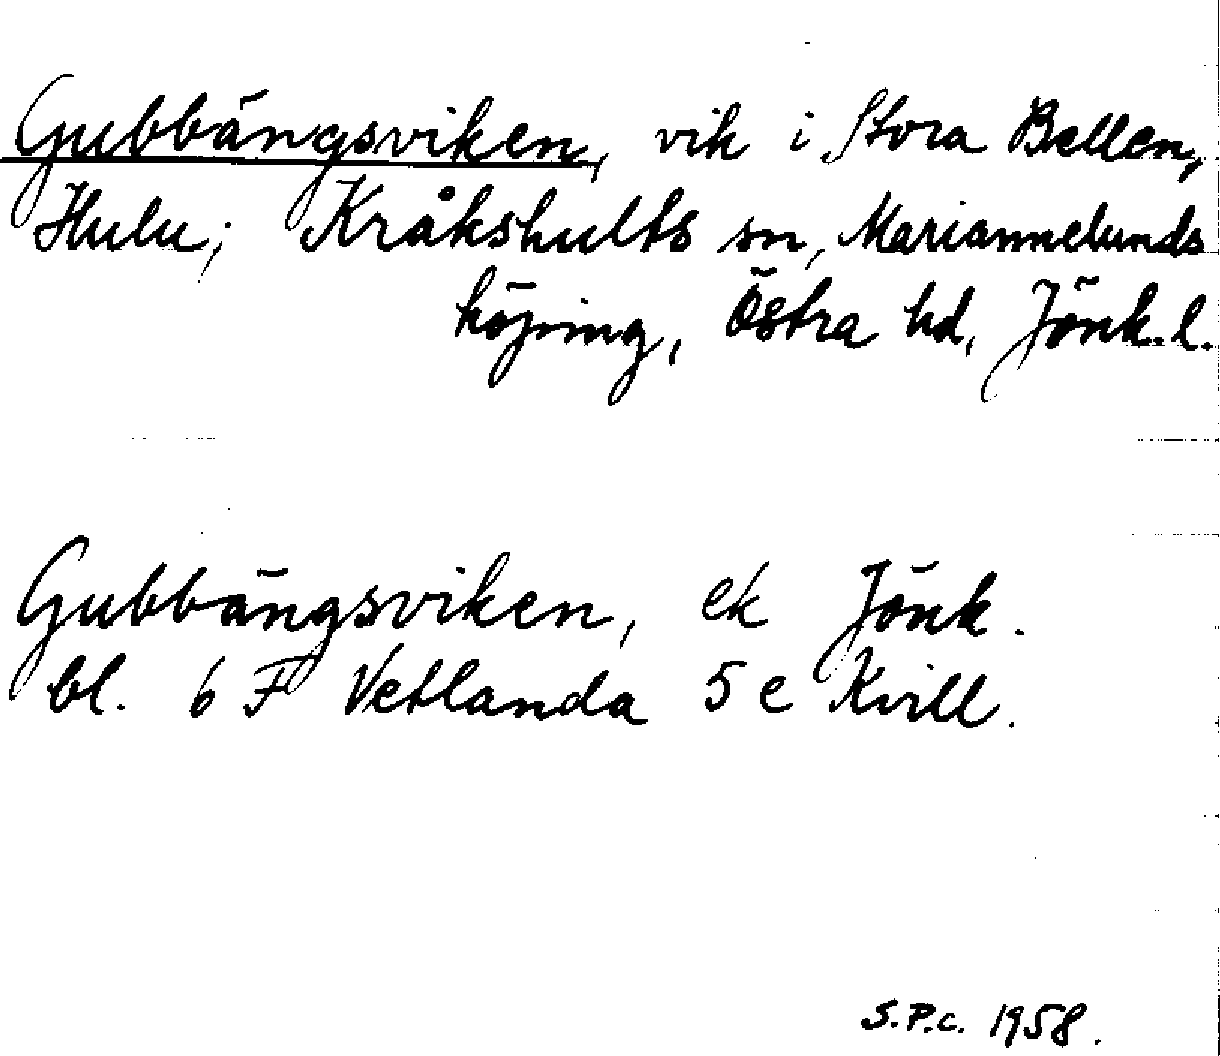 Gubbängsviken, vik i Stora Bellen,
Hulu; Kråkshults sn, Mariannelunds
köping, Östra hd, Jönk. l.
Gubbängsviken, ek Jönk.
bl. 6 F Vetlanda 5 e Kvill.
S.P.c. 1958.